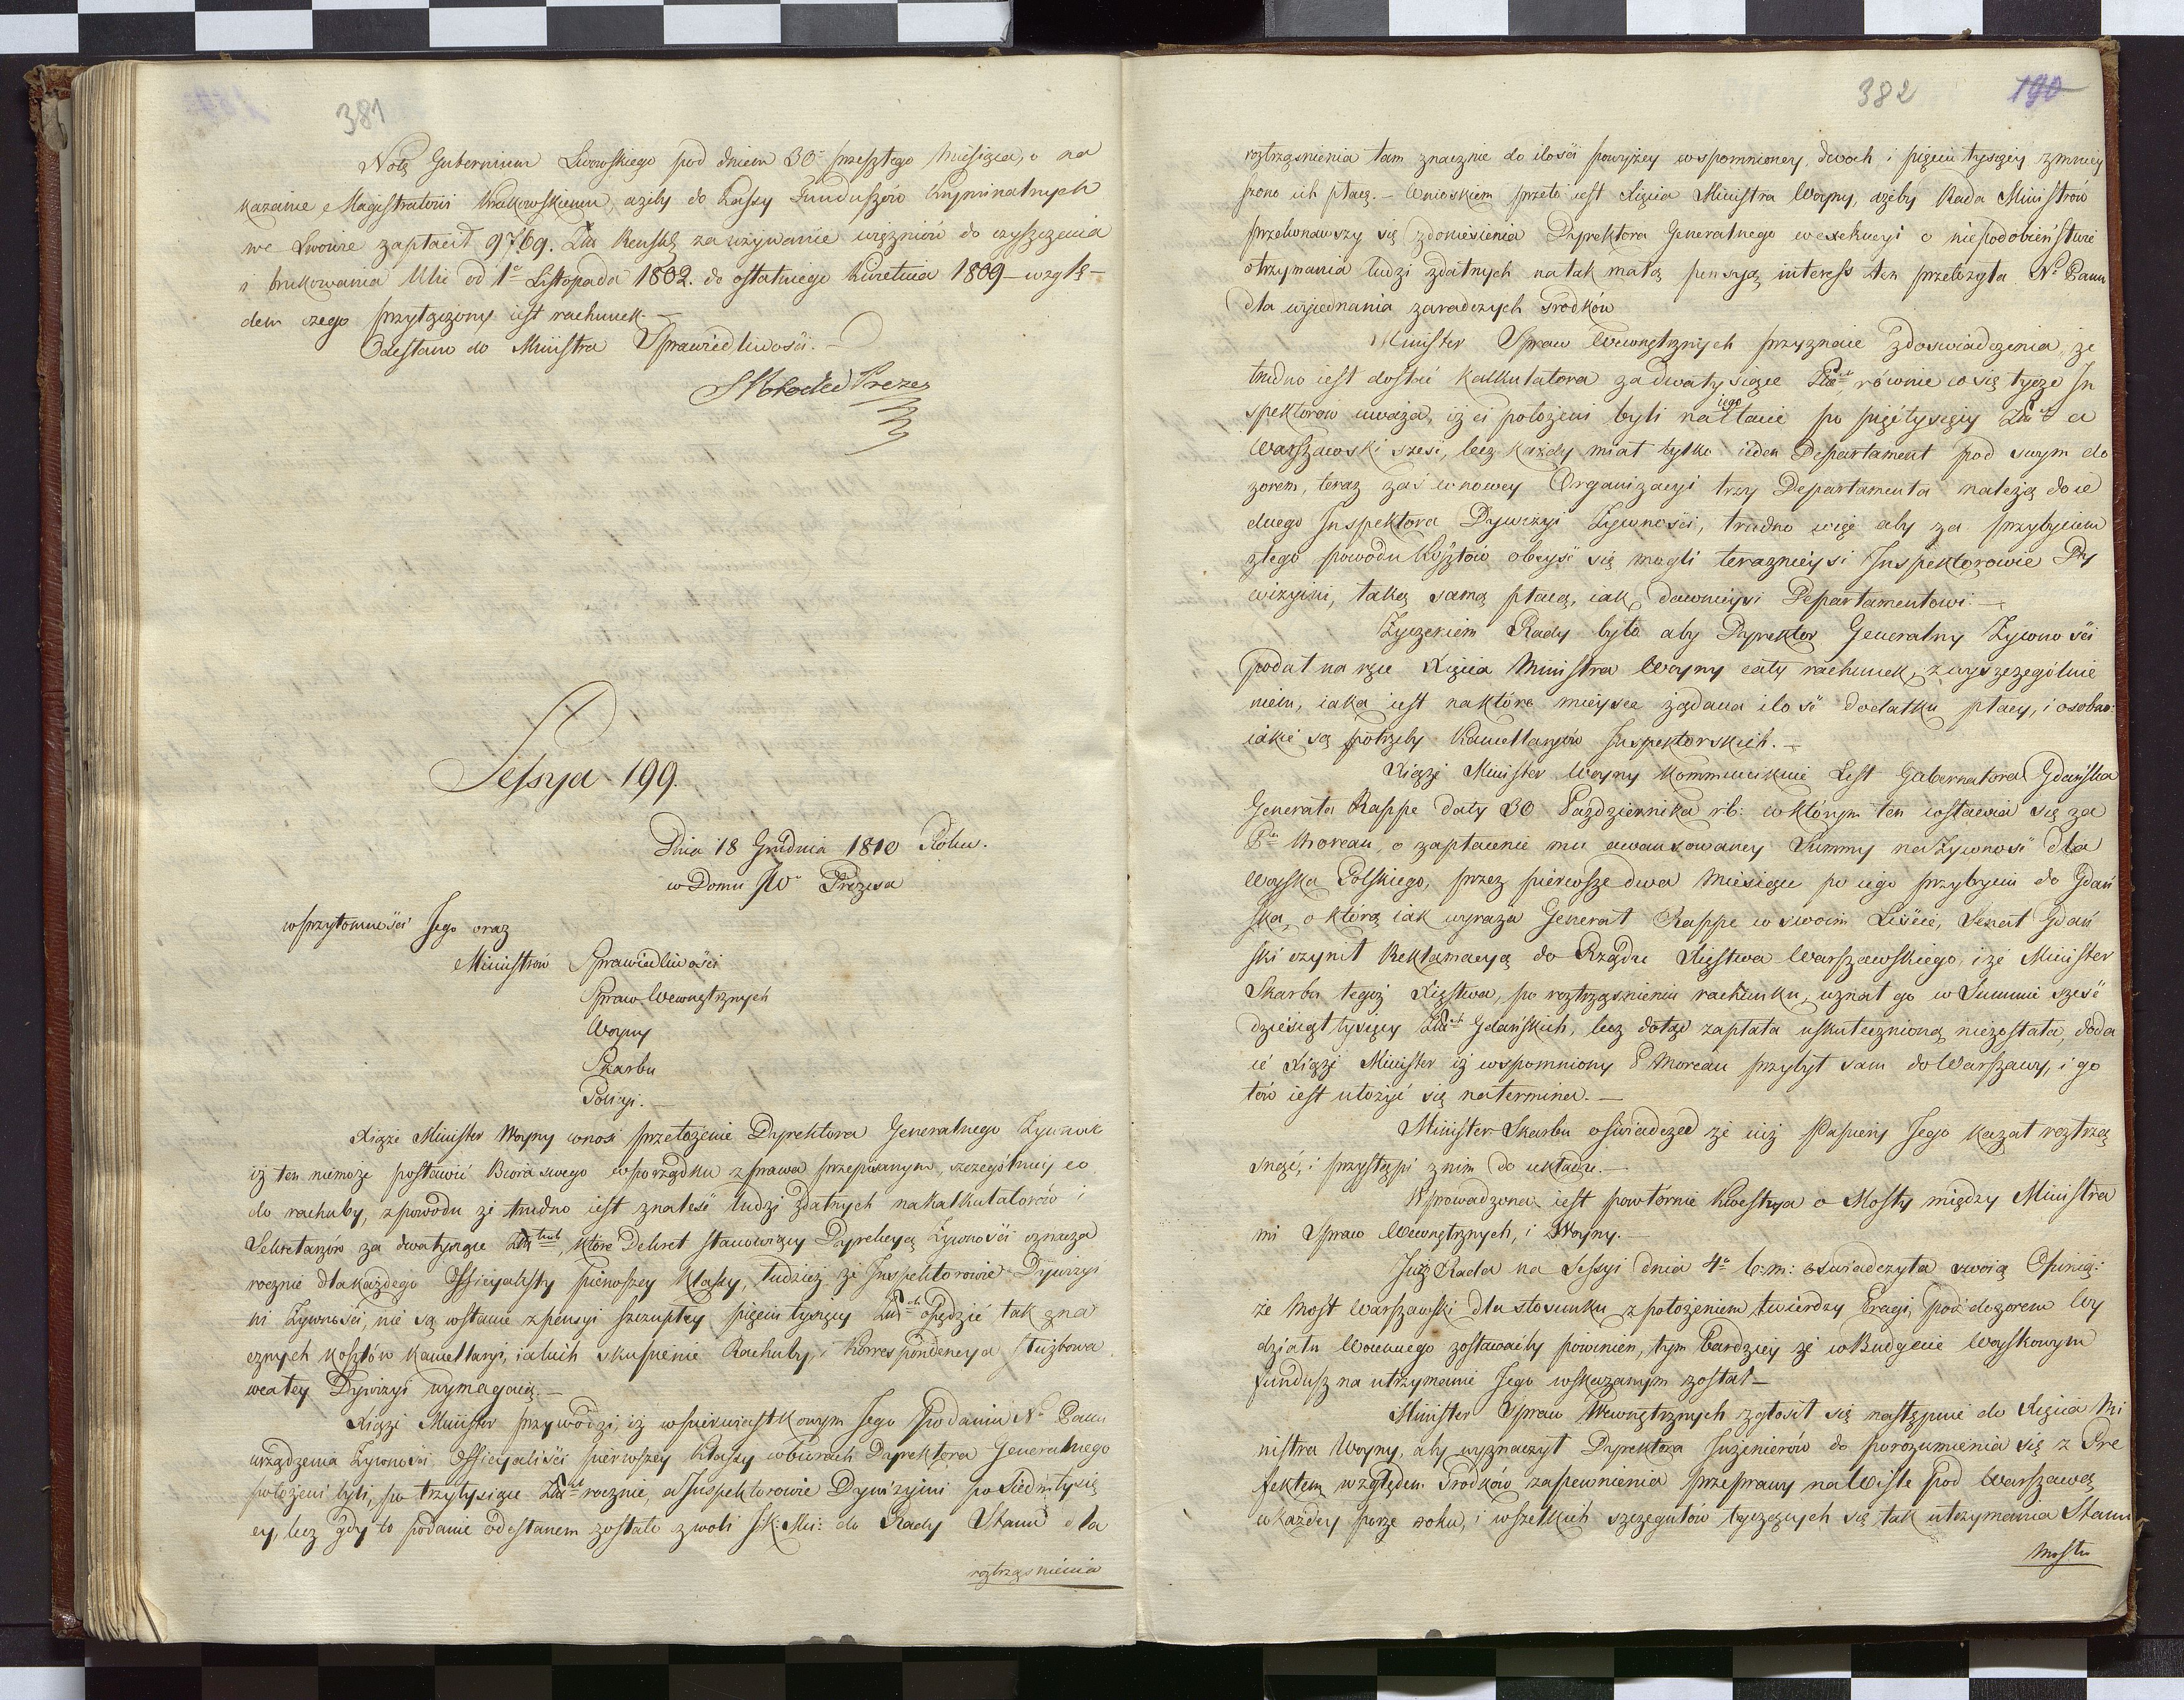 381
Notę Gubernium Lwowskiego pod dniem 30 przeszłego Miesiąca, o na
kazanie Magistratowi Krakowskiemu, ażeby do Kassy Funduszów Kryminalnych
we Lwowie zapłacił 9769. Zł. Reńskch za używanie więzniów do czyszczenia
i brukowania Ulic od 1o Listopada 1802. do ostatniego Kwietnia 1809 – wzglę–
dem czego przyłączony iest rachunek. –
Odesłano do Ministra Sprawiedliwości. –
Prezes
Sessya 199.
Dnia 18 Grudnia 1810 Roku.
w Domu JWo Prezesa
w przytomności Jego oraz
Ministrów Sprawiedliwości
Spraw Wewnętrznych
Woyny
Skarbu
Policyi. –
Xiąże Minister Woyny wnosi przełożenie Dyrektora Generalnego Żywności
iż ten niemoże postawić Biura swego w porządku z prawa przepisanym, szczególniey co
do rachuby, z powodu że trudno iest znaleść ludzi zdatnych na kalkulatorów i
Sekretarzów za dwa tysiące Złt, które Dekret stanowiący Dyrekcyą Żywności oznacza
rocznie dla każdego Officyalisty pierwszey klassy, tudzież że Inspektorowie Dywizyi
ni Żywności, nie są wstanie z pensyi szczupłey pięciu tysięcy Złt opędzić tak zna
cznych kosztów kancellaryi, iakich skupienie Rachuby, i Korrespondencya służbowa
wcałey Dywizyi wymagaią. –
Xiąże Minister przywodzi, iż w pierwiastkowym Jego Podaniu No Panu
urządzenia Żywności, Officyaliści pierwszey klassy w biurach Dyrektora Generalnego
położeni byli, po trzy tysiące Złt rocznie, a Inspektorowie Dywizyini po siedm tysię
cy, lecz gdy to podanie odesłanem zostało z woli do Rady Stanu dla
roztrząśnienia
382 190
roztrząśnienia tam znacznie do ilości powyżey wspomnioney, dwóch i pięciu tysięcy zmniey
szono ich płacę. – Wnioskiem przeto iest Xięcia Ministra Woyny, ażeby Rada Ministrów
przekonawszy się z doniesienia Dyrektora Generalnego wexekucyi o niepodobieństwie
otrzymania ludzi zdatnych na tak małą pensyą, interess ten przełożyła No Panu
dla wyiednania zaradczych środków
Minister Spraw Wewnętrznych przyznaie z doświadczenia, że
trudno iest dostać kalkulatora za dwa tysiące Złt, równie co się tycze In
spektorów uważa, iż ci położeni byli na iego etacie po pięć tysięcy Złt a
Warszawski sześć, lecz każdy miał tylko ieden Departament pod swym do
zorem, teraz zaś w nowey Organizacyi trzy Departamenta należą do ie
dnego Inspektora Dywizyi Żywności, trudno więc aby za przybyciem
z tego powodu kosztów obeyść się mogli teraznieysi Inspektorowie Dy
wizyini, taką samą płacą, iak dawnieysi Departamentowi. –
Życzeniem Rady było aby Dyrektor Generalny Żywności
podał na ręce Xięcia Ministra Woyny cały rachunek, z wyszczególnie
niem, iaka iest na które mieysce żądana ilość dodatku płacy, i osobno:
iakie są potrzeby Kancellaryów Inspektorskich. –
Xiąże Minister Woyny kommunikuie List Gubernatora Gdańska
Generała Rappe daty 30 Pazdziernika rb: w którym ten wstawia się za
Pm Moreau, o zapłacenie mu awansowaney Summy na Żywność dla
Woyska Polskiego, przez pierwsze dwa Miesiące po iego przybyciu do Gdań
ska, o którą iak wyraża Generał Rappe w swoim Liście, Senat Gdań
ski czynił Reklamacyą do Rządu Xięstwa Warszawskiego, i że Minister
Skarbu tegoż Xięstwa, po roztrząśnieniu rachunku, uznał go w Summie sześć
dziesiąt tysięcy Złt Gdańskich, lecz dotąd zapłata uskutecznioną niezostała, doda
ie Xiąże Minister iż wspomniony P Moreau przybył sam do Warszawy, i go
tów iest ułożyć się na termina. –
Minister Skarbu oświadczed że iuż Papiery Jego kazał roztrzą
snąć, i przystąpi z nim do układu. –
Wprowadzona iest powtórnie kwestya o Mosty między Ministra
mi Spraw Wewnętrznych, i Woyny. –
Już Rada na Sessyi dnia 4o b:m: oświadczyła swoią Opinią:
że Most Warszawski dla stosunku z położeniem twierdzy Pragi, pod dozorem Wy
działu Woiennego zostawać by powinien, tym bardziey że w Budgecie Woyskowym
fundusz na utrzymanie Jego wskazanym został –
Minister Spraw Wewnętrznych zgłosił się następnie do Xięcia Mi
nistra Woyny, aby wyznaczył Dyrektora Inżenierów do porozumienia się z Pre
fektem względem środków zapewnienia przeprawy na Wiśle pod Warszawą
w każdey porze roku, i wszelkich szczegułów tyczących się, tak utrzymania Stanu
Mostu